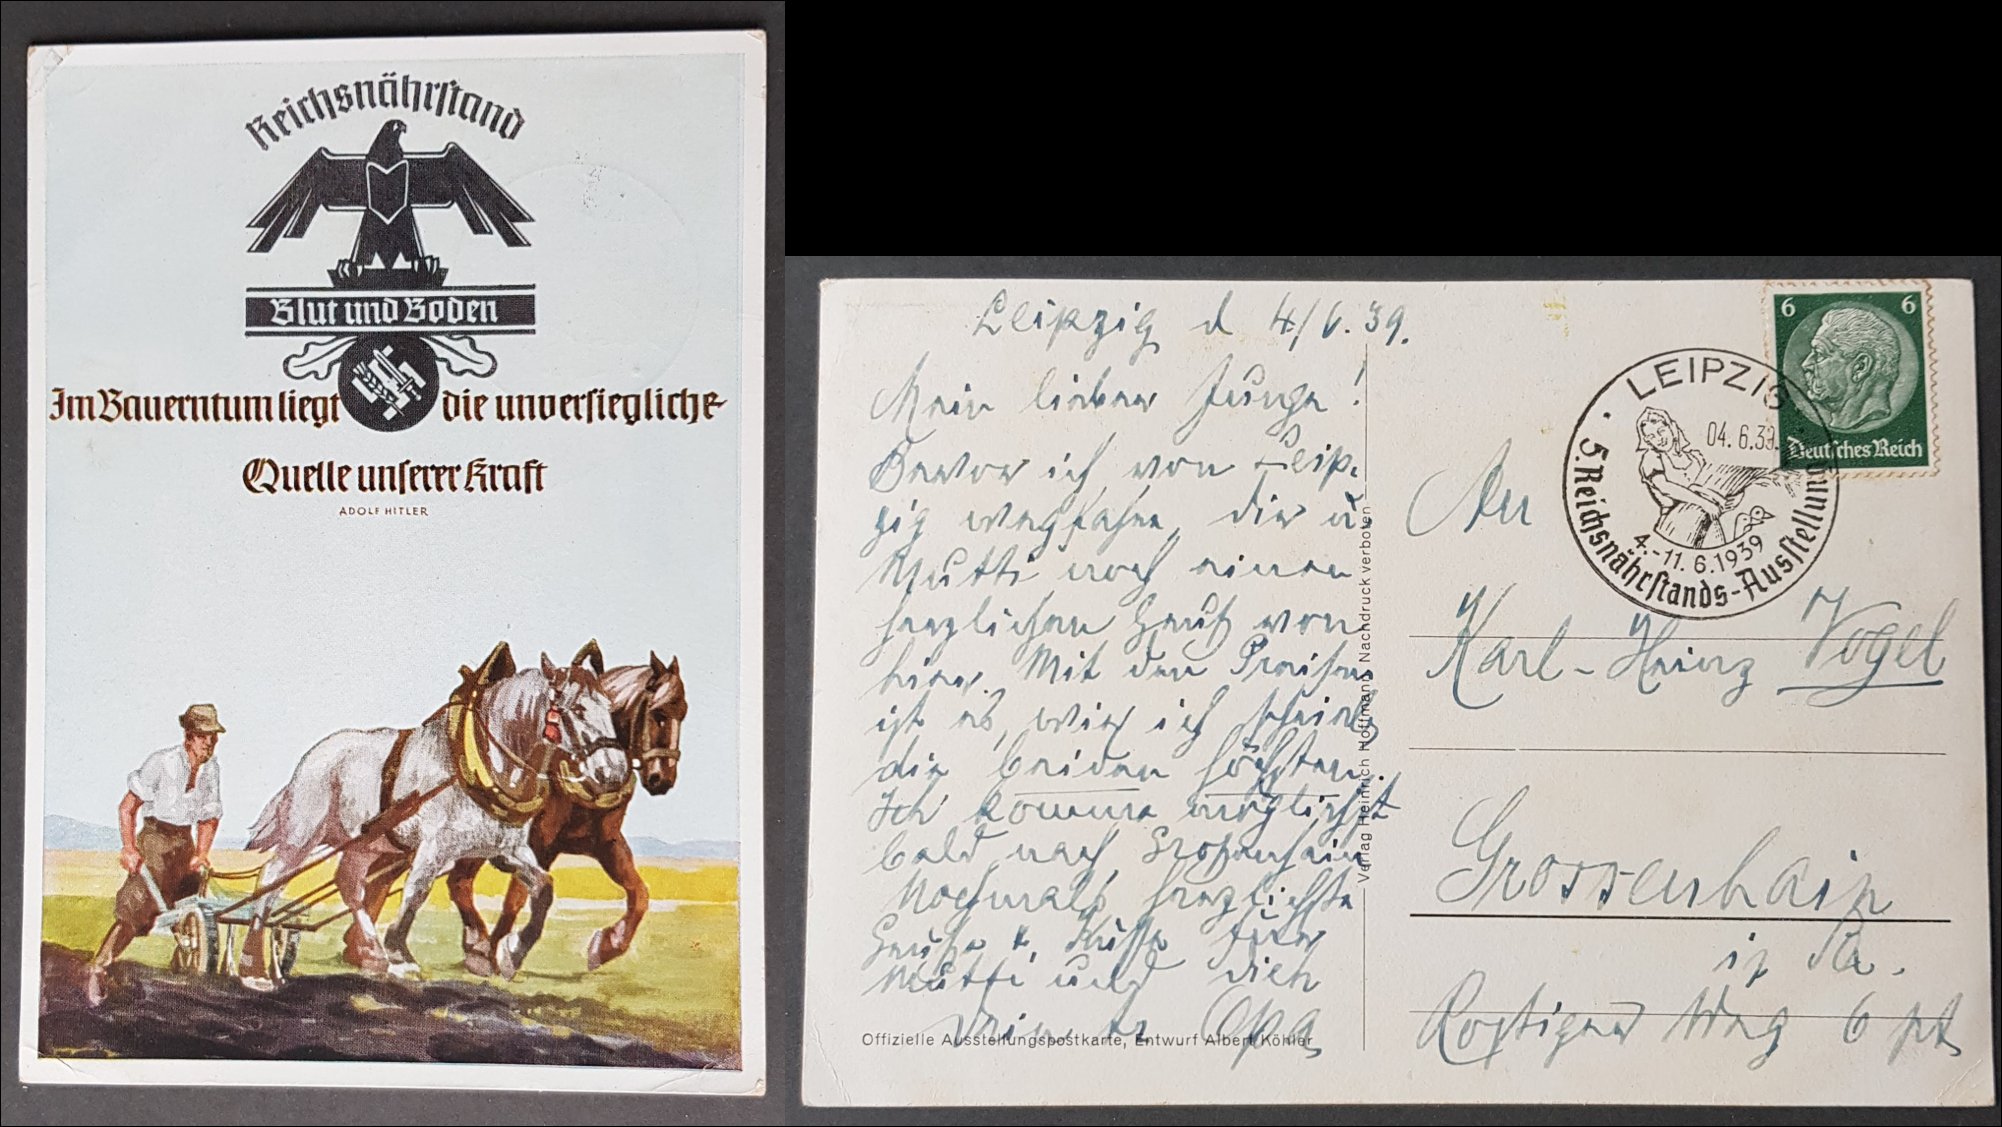 Reichsnährstand
Blut und Boden
Im Bauerntum liegt die unversiegliche
Quelle unserer Kraft
ADOLF HITLER
Leipzig d 4/6.39.
Mein lieber Junge!
Bevor ich von Leip-
zig wegfahre, dir u.
Mutti noch einen
herzlichen Gruß von
hier. Mit den Preisen
ist es, wie ich
die beiden höchsten.
Ich komme möglichst
bald nach Großenhain
Nochmals herzlichste
Grüße u. Küsse
Mutti und dich
Opa
Offizielle Ausstellungspostkarte, Entwurf Albert Köhler
Verlag Heinrich Hoffmann Nachdruck verboten
6 6
Deutsches Reich
LEIPZIG
04.6.39.
4.-11.6.1939
5. Reichsnährstands-Ausstellung
An
Karl-Heinz Vogel
Grossenhain
i. Sa.
Weg 6 pt